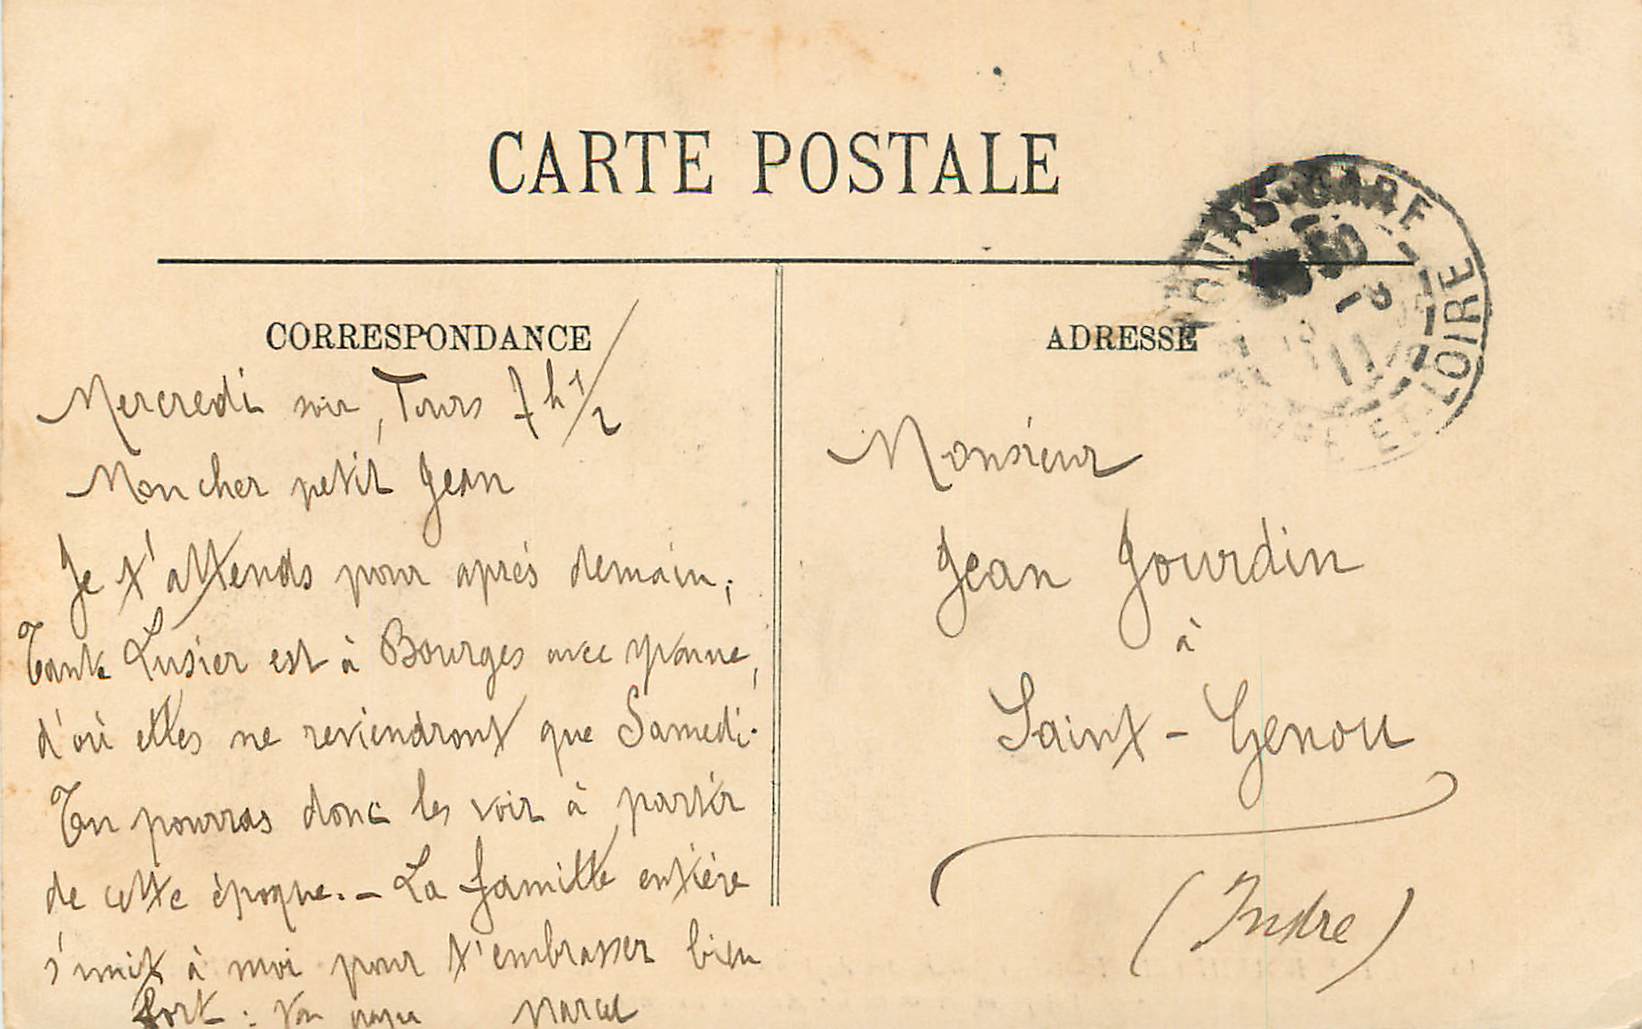 CARTE POSTALE
CORRESPONDANCE
Mercredi soir, Tours 7h 1/2
Mon cher petit Jean
Je t'attends pour après demain;
Tante Lusier est à Bourges avec Yvonne,
d'où elles ne reviendront que Samedi.
Tu pourras donc les voir à partir
de cette époque. - La famille entière
s'unit à moi pour t'embrasser bien
fort: Ton papa Marcel
ADRESSE
TOURS-GARE
ET-LOIRE
11
Monsieur
Jean Jourdin
à
Saint-Genou
(Indre)